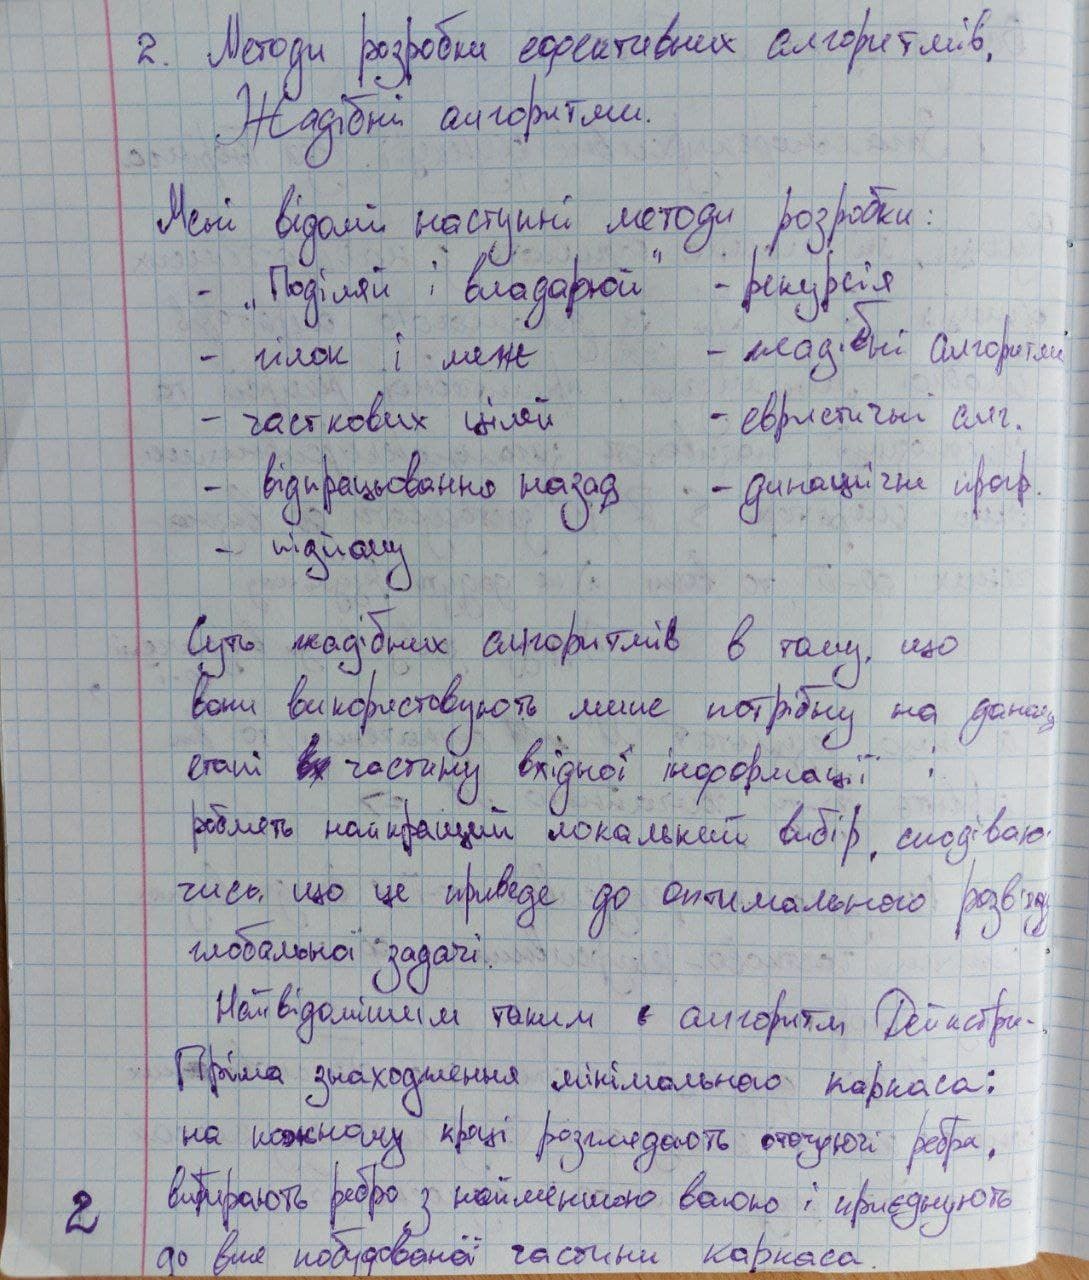 2. Методи розробки ефективних алгоритмів.
Жадібні алгоритми.
Мені відомі наступні методи розробки:
- „Поділяй і владарюй" - рекурсія
- гілок і меж - жадібні алгоритми
- часткових цілей - евристичні алг.
- відпрацьованно назад - динамічне прогр.
- підйому
Суть жадібних алгоритмів в тому, що
вони використовують лише потрібну на даному
етапі частину вхідної інформації і
роблять найкращий локальний вибір, сподіваю-
чись, що це приведе до оптимального розв'язку
глобальної задачі.
Найвідомішим таким є алгоритм Дейкстри-
Пріма знаходження мінімального каркаса:
на кожному кроці розглядають оточуючі ребра,
вибирають ребро з найменшою вагою і приєднують
до вже побудованої частини каркаса.
2